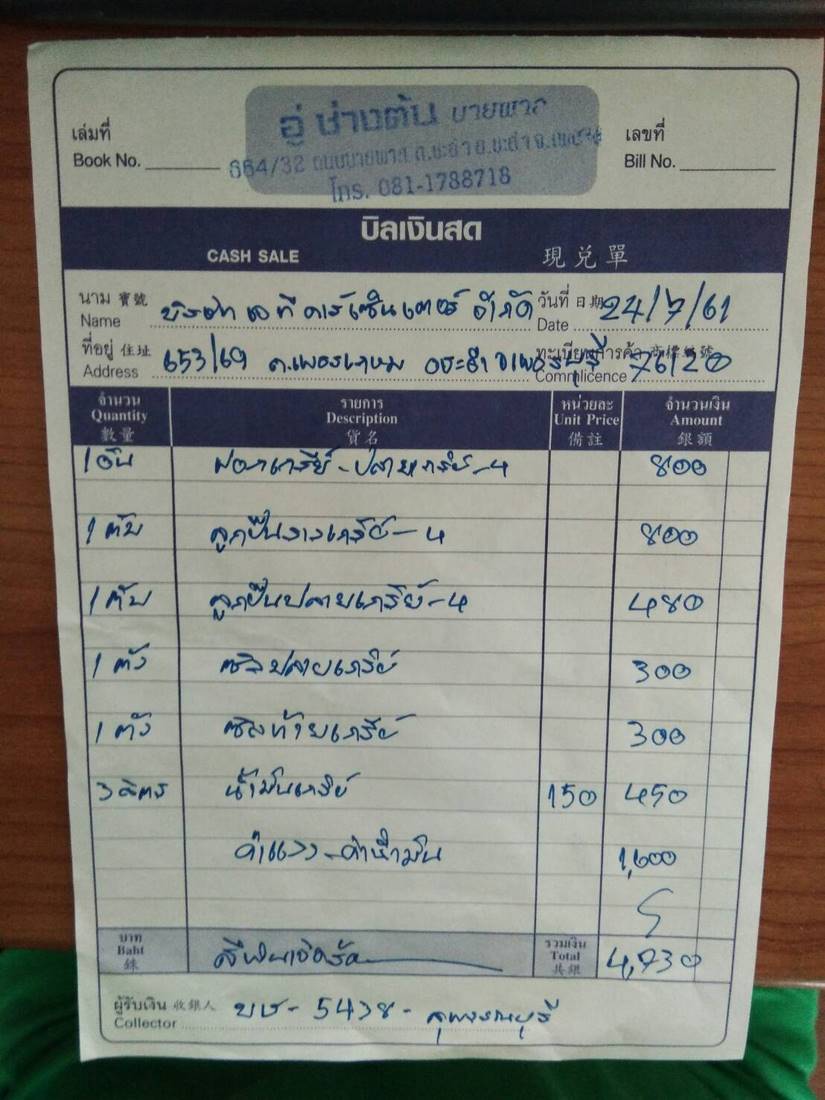 อู่ ช่างต้น บายพาส
664/32 ถนนบายพาส ต.ชะอำ อ.ชะอำ จ.เพชรบุรี
โทร. 081-1788718
เล่มที่
Book No.
เลขที่
Bill No.
บิลเงินสด
CASH SALE 現兌單
นาม 寶號 บริษัท เอ ที คาร์เซ็นเตอร์ จำกัด วันที่ 日期 24/7/61
Name Date
ที่อยู่ 住址 653/69 ถ.เพชรเกษม อ.ชะอำ จ.เพชรบุรี ทะเบียนการค้า 商標編號 76120
Address Commlicence
จำนวน รายการ หน่วยละ จำนวนเงิน
Quantity Description Unit Price Amount
數量 貨名 備註 銀額
1 อัน เกียร์-ปลายเกียร์-4 800
1 ตับ ลูกปืนกลางเกียร์-4 800
1 ตับ ลูกปืนปลายเกียร์-4 480
1 ตัว ซีลปลายเกียร์ 300
1 ตัว ซีลท้ายเกียร์ 300
3 ลิตร น้ำมันเกียร์ 150 450
ค่าแรง-ค่าน้ำมัน 1,600
บาท รวมเงิน
Baht Total 4,730
銖 共銀
ผู้รับเงิน 收銀人 บษ-5438-สุพรรณบุรี
Collector